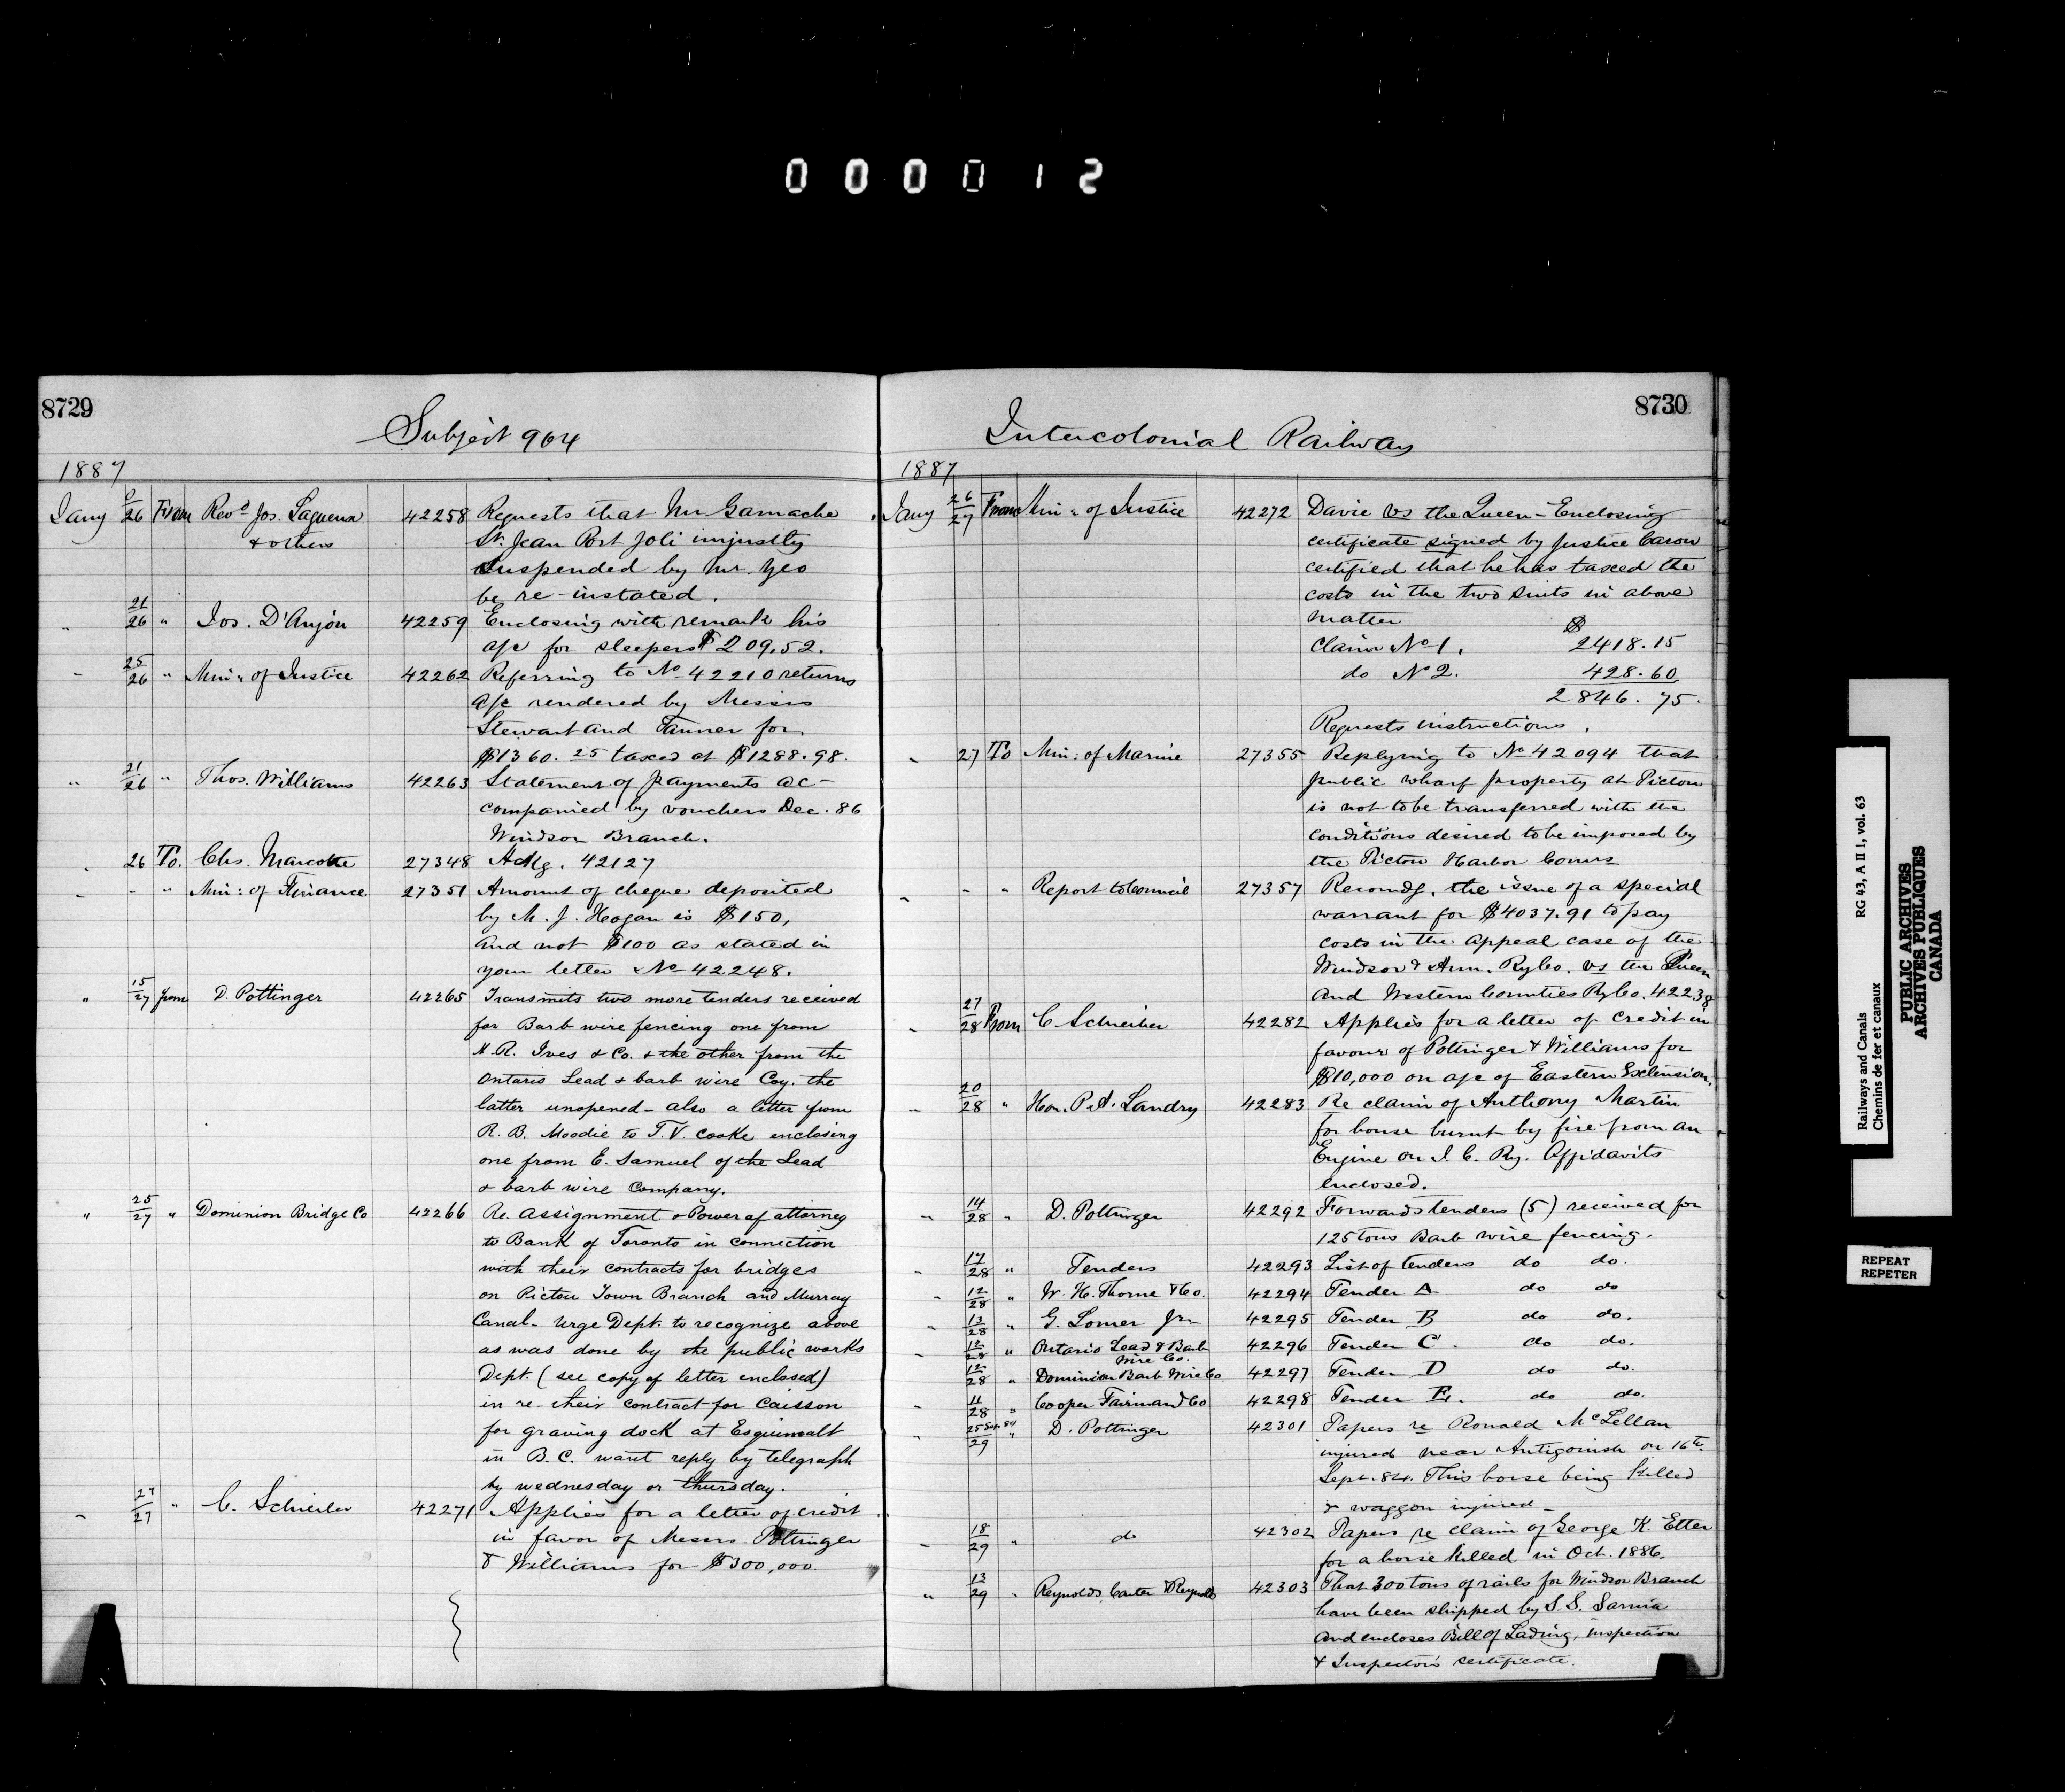 000012
8729
Subject 904
1887
Jany 26 From Revd. Jos. Laguerre 42258 Requests that Mr Gamache
& others St. Jean Port Joli unjustly
suspended by Mr. Yeo
be re-instated.
" 21/26 " Jos. D'Anjou 42259 Enclosing with remark his
a/c for sleepers $209.52.
" 25/26 " Min: of Justice 42262 Referring to No 42210 returns
a/c rendered by Messrs
Stewart and Tanner for
$1360.25 taxed at $1288.98.
" 21/26 " Thos. Williams 42263 Statement of payments ac-
companied by vouchers Dec. 86
Windsor Branch.
" 26 To. Chs. Marcotte 27348 Ackg. 42127
" - " Min: of Finance 27351 Amount of cheque deposited
by M. J. Hogan is $150,
and not $100 as stated in
your letter No 42248.
" 15/27 from D. Pottinger 42265 Transmits two more tenders received
for Barb wire fencing one from
H. R. Ives & Co. & the other from the
Ontario Lead & barb wire Coy. the
latter unopened - also a letter from
R. B. Moodie to T. V. Cooke enclosing
one from E. Samuel of the Lead
& barb wire Company.
" 25/27 " Dominion Bridge Co 42266 Re. Assignment & Power of attorney
to Bank of Toronto in connection
with their contracts for bridges
on Pictou Town Branch and Murray
Canal - Urge Dept. to recognize above
as was done by the public works
Dept. (see copy of letter enclosed)
in re - their contract for Caisson
for graving dock at Esquimalt
in B. C. want reply by telegraph
by wednesday or thursday.
" 27/27 " C. Schreiber 42271 Applies for a letter of credit
in favor of Messrs Pottinger
& Williams for $300,000.
8730
Intercolonial Railway
1887
Jany 26/27 From Min: of Justice 42272 Davie vs the Queen - Enclosing
certificate signed by Justice Caron
certified that he has taxed the
costs in the two suits in above
matter $
Claim No 1. 2418.15
do No 2. 428.60
2846.75.
Requests instructions.
" 27 To Min: of Marine 27355 Replying to No 42094 that
public wharf property at Pictou
is not to be transferred with the
conditions desired to be imposed by
the Pictou Harbor Comrs
" - " Report to Council 27357 Recomdg. the issue of a special
warrant for $4037.91 to pay
costs in the Appeal case of the
Windsor & Ann. Ry Co. vs the Queen
and Western Counties Ry Co. 42238
" 27/28 From C. Schreiber 42282 Applies for a letter of credit in
favour of Pottinger & Williams for
$10,000 on a/c of Eastern Extension.
" 20/28 " Hon. P. A. Landry 42283 Re claim of Anthony Martin
for house burnt by fire from an
Engine on I. C. Ry. Affidavits
enclosed.
" 14/28 " D. Pottinger 42292 Forwards tenders (5) received for
125 tons Barb wire fencing.
" 17/28 " Tenders 42293 List of tenders do do.
" 12/28 " W. H. Thorne & Co. 42294 Tender A do do
" 13/28 " G. Lomer Jr 42295 Tender B do do.
" 12/28 " Ontario Lead & Barb 42296 Tender C. do do.
Wire Co.
" 12/28 " Dominion Barb Wire Co 42297 Tender D do do.
" 11/28 " Cooper Fairman & Co 42298 Tender E. do do.
" 25 Sep. 84/29 " D. Pottinger 42301 Papers re Ronald McLellan
injured near Antigonish on 16th
Sept. 84. This horse being killed
& waggon injured -
" 18/29 " do 42302 Papers re claim of George K. Etter
for a horse killed in Oct. 1886.
" 13/29 " Reynolds, Carter & Reynolds 42303 That 300 tons of rails for Windsor Branch
have been shipped by S. S. Sarnia
and encloses Bill of Lading, inspection
& Inspectors certificate.
Railways and Canals RG 43, A II 1, vol. 63
Chemins de fer et canaux
PUBLIC ARCHIVES
ARCHIVES PUBLIQUES
CANADA
REPEAT
REPETER